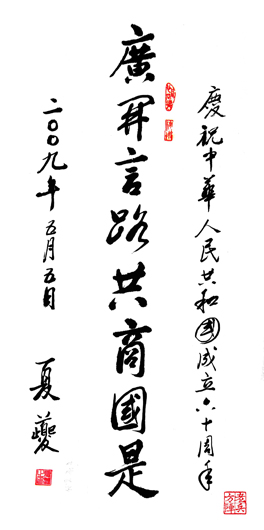 慶祝中華人民共和國成立六十周年
廣開言路共商國是
二〇〇九年五月五日
夏